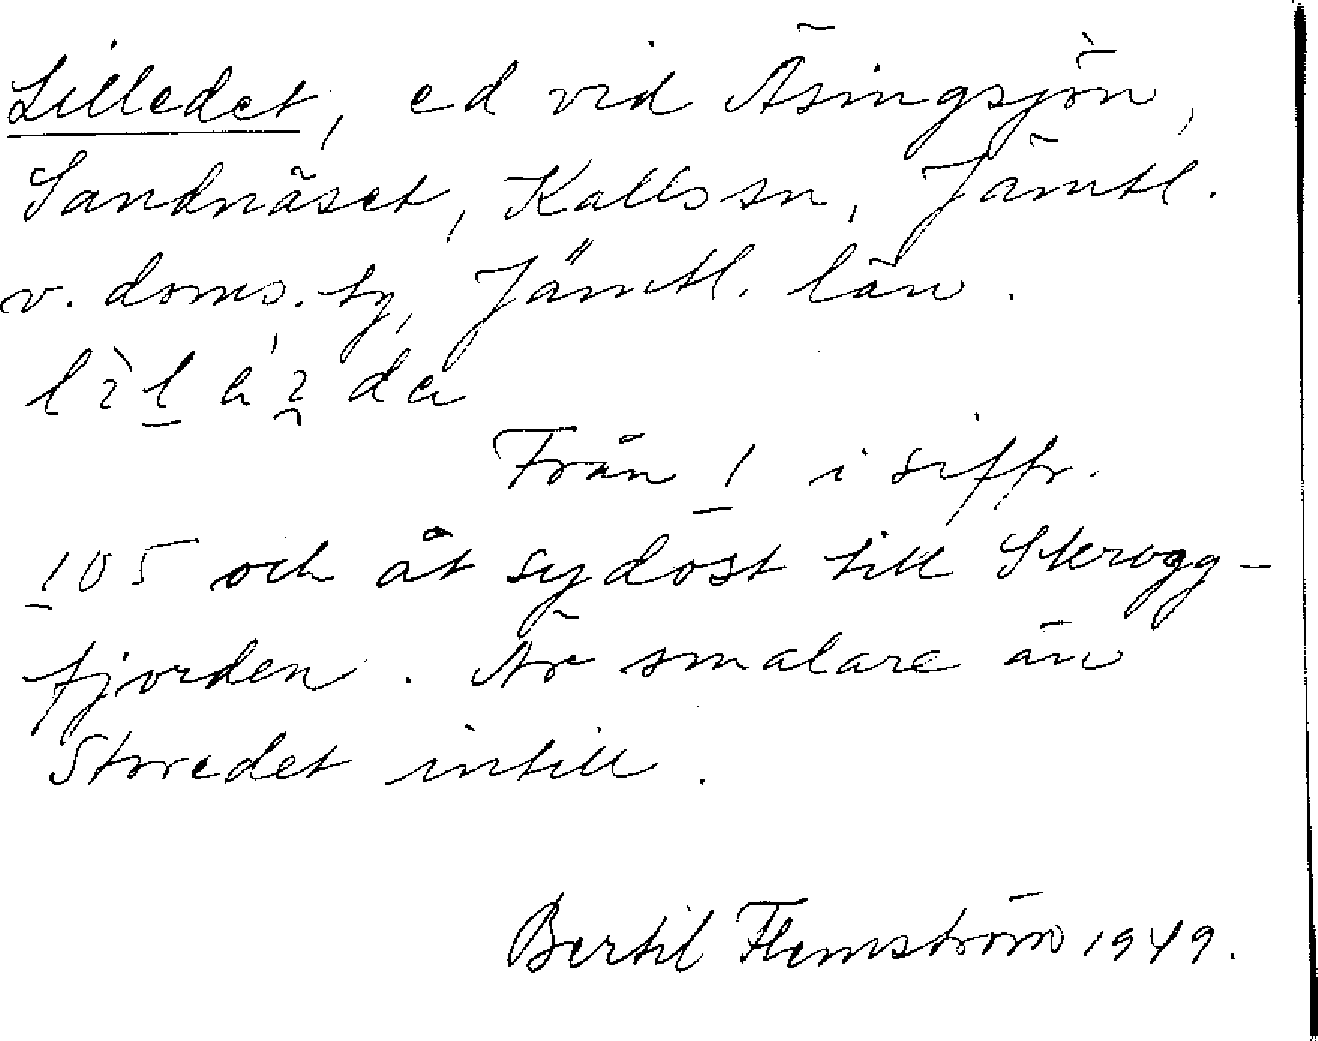 Lilledet, ed vid Äsingsjön,
Sandnäset, Kalls sn, Jämtl.
v. doms. tg, Jämtl. län.
Från 1 i siffr.
105 och åt sydost till Skrogg-
fjorden. Är smalare än
Storedet intill.
Bertil Flemström 1949.